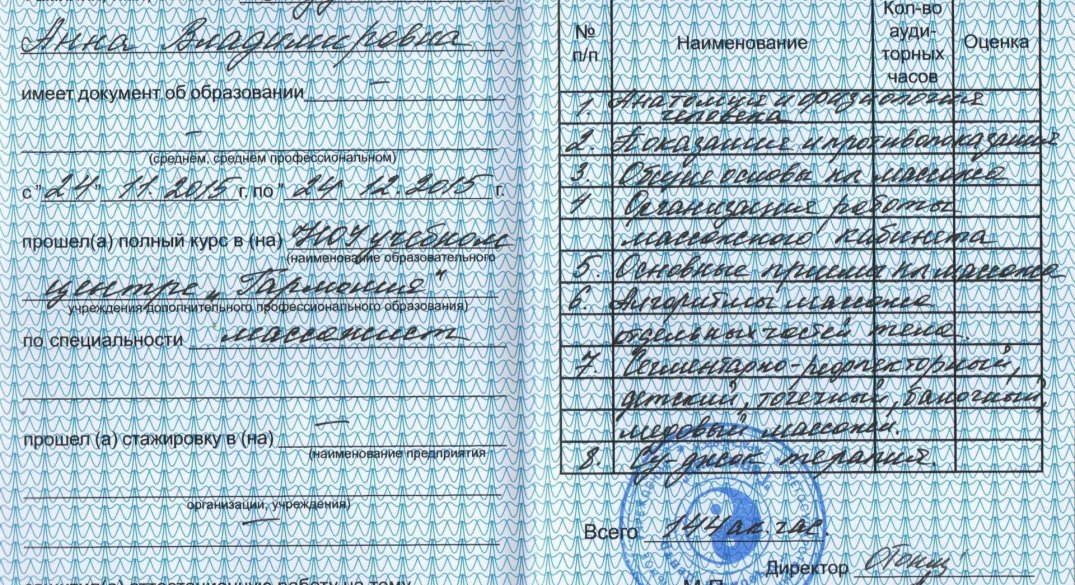 Анна Владимировна
имеет документ об образовании —
—
(среднем, среднем профессиональном)
с "24" 11.2015 г. по "24 12.2015 г.
прошел(а) полный курс в (на) НОУ учебном
(наименование образовательного
центре „Гармония"
учреждения дополнительного профессионального образования)
по специальности массажист
прошел (а) стажировку в (на) —
(наименование предприятия
организации, учреждения)
—
аттестационную работу на тему
№ п/п
Наименование
Кол-во
ауди-
торных
часов
Оценка
1. Анатомия и физиология
человека
2. Показания и противопоказания
3. Общие основы кл массажа
4 Организация работы
массажного кабинета
5. Основные приемы кл массажа
6. Алгоритмы массажа
отдельных частей тела.
7. Сегментарно-рефлекторный,
детский, точечный, баночный,
медовый массажи.
8. Су-джок терапия.
Всего 144 ак час.
Директор
М.П.